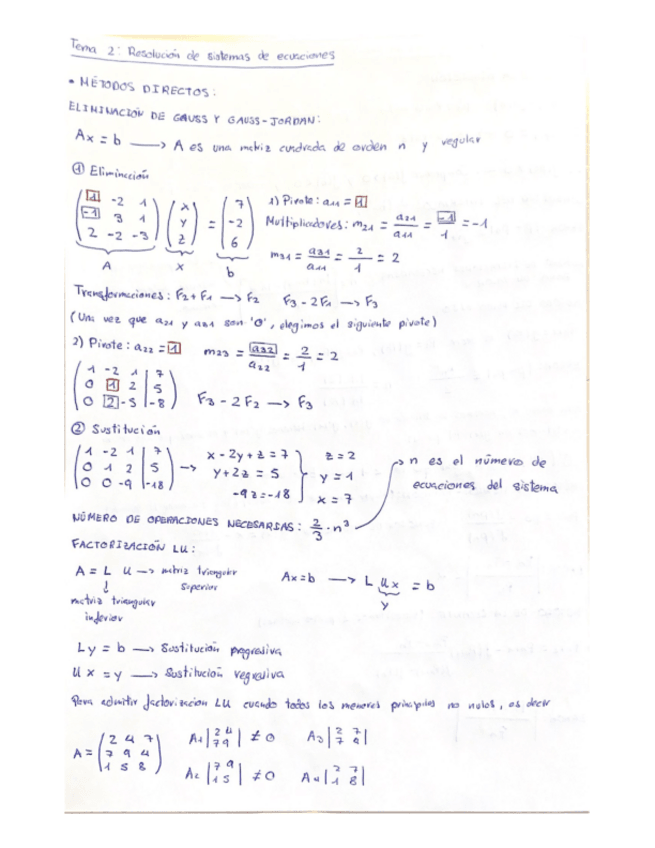 Tema 2: Resolución de sistemas de ecuaciones
• MÉTODOS DIRECTOS:
ELIMINACIÓN DE GAUSS Y GAUSS-JORDAN:
Ax = b → A es una matriz cuadrada de orden n y regular
① Eliminación
( 1 -2 1 ) ( x ) = ( 7 ) 1) Pivote: a11 = 1
( -1 3 1 ) ( y ) ( -2 ) Multiplicadores: m21 = a21/a11 = -1/1 = -1
( 2 -2 -3 ) ( z ) ( 6 )
A x b m31 = a31/a11 = 2/1 = 2
Transformaciones: F2+F1 → F2 F3 - 2F1 → F3
(Una vez que a21 y a31 son '0', elegimos el siguiente pivote)
2) Pivote: a22 = 1 m23 = a32/a22 = 2/1 = 2
( 1 -2 1 | 7 )
( 0 1 2 | 5 )
( 0 2 -5 | -8 ) F3 - 2F2 → F3
② Sustitución
( 1 -2 1 | 7 ) x - 2y + z = 7 z = 2
( 0 1 2 | 5 ) → y + 2z = 5 y = 1
( 0 0 -9 | -18 ) -9z = -18 x = 7
→ n es el número de
ecuaciones del sistema
NÚMERO DE OPERACIONES NECESARIAS: 2/3 · n³
FACTORIZACIÓN LU:
A = L U → matriz triangular superior
↓
matriz triangular
inferior
Ax=b → L Ux = b
y
Ly = b → Sustitución progresiva
Ux = y → Sustitución regresiva
Para admitir factorización LU cuando todos los menores principales no nulos, es decir
A = ( 2 4 7 )
( 7 9 4 )
( 1 5 8 )
A1 | 2 4 | ≠ 0 A3 | 2 7 |
| 7 9 | | 7 9 |
A2 | 7 9 | ≠ 0 A4 | 2 7 |
| 1 5 | | 1 8 |